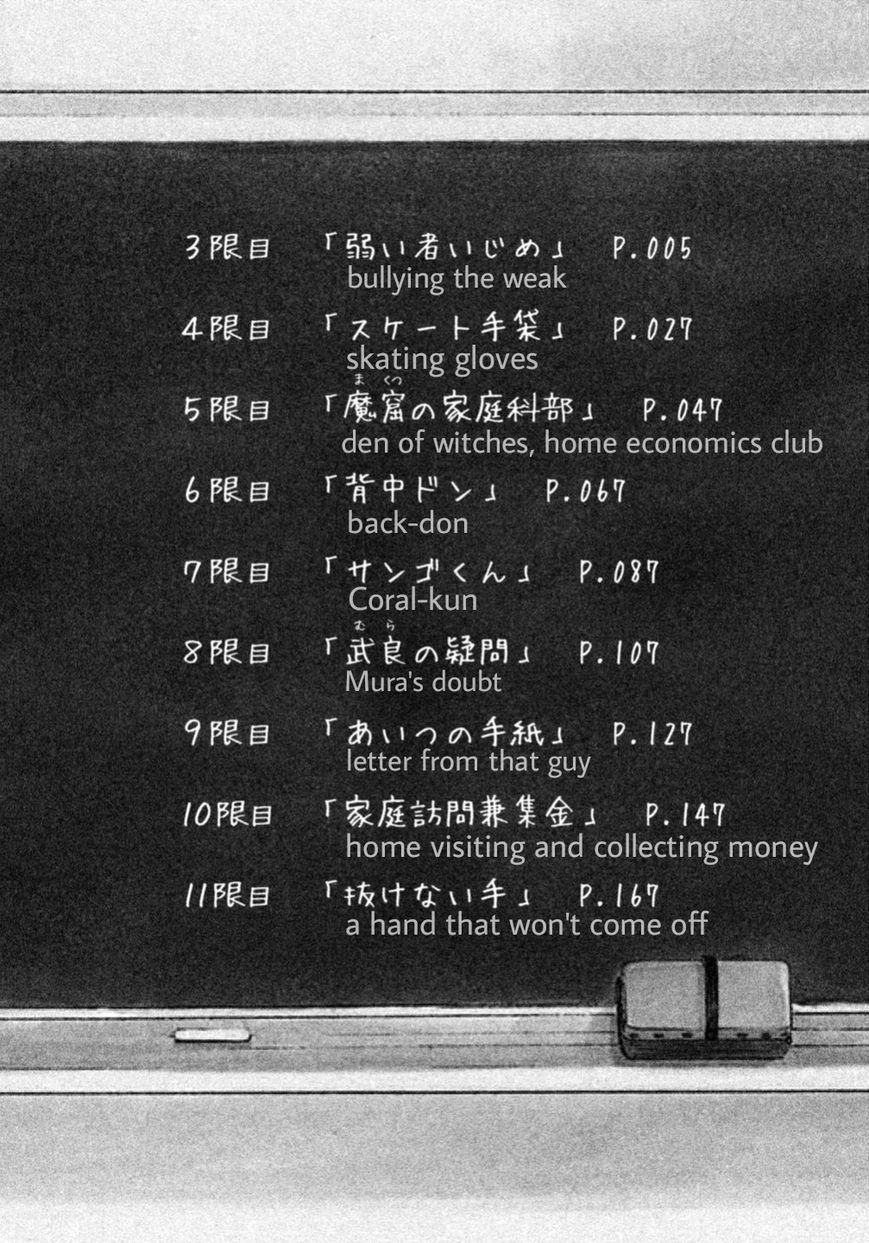 3限目 「弱い者いじめ」 P.005
bullying the weak
4限目 「スケート手袋」 P.027
skating gloves
ま くつ
5限目 「魔窟の家庭科部」 P.047
den of witches, home economics club
6限目 「背中ドン」 P.067
back-don
7限目 「サンゴくん」 P.087
Coral-kun
む ら
8限目 「武良の疑問」 P.107
Mura's doubt
9限目 「あいつの手紙」 P.127
letter from that guy
10限目 「家庭訪問兼集金」 P.147
home visiting and collecting money
11限目 「抜けない手」 P.167
a hand that won't come off